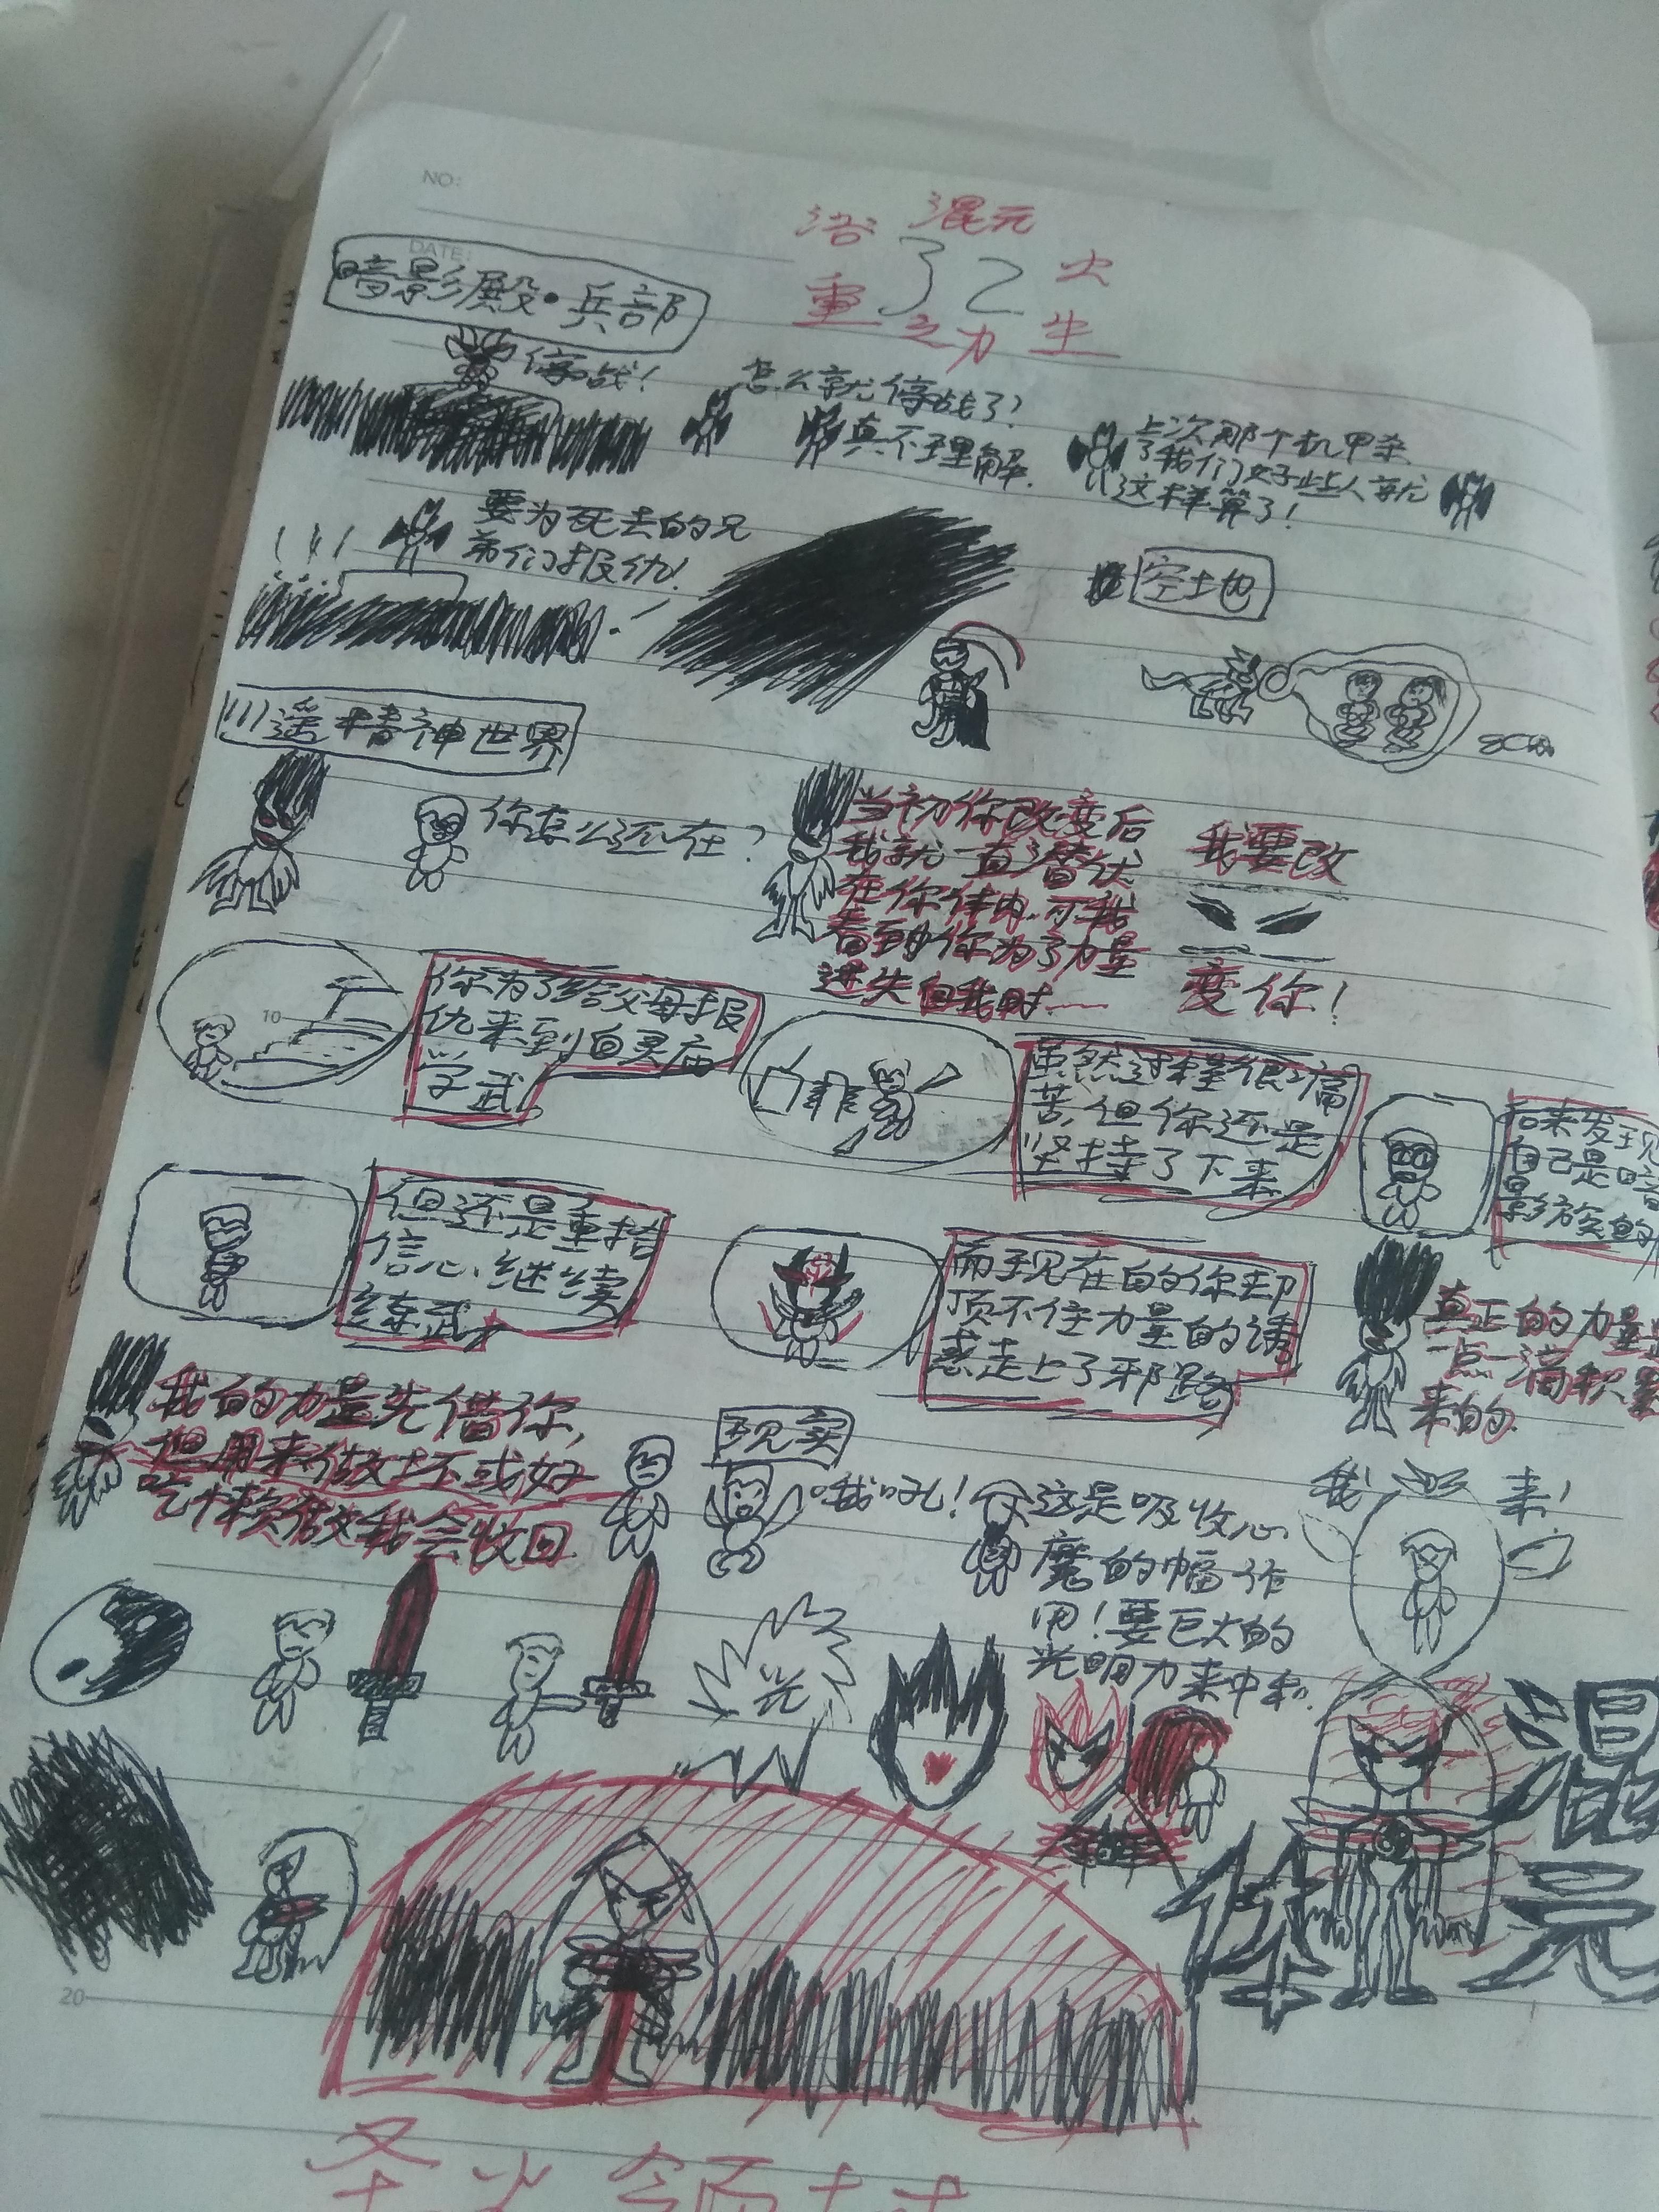 NO:
DATE:
浴 混元 火
重 32 生
之力
暗影殿·兵部
停战!
怎么就停战了?
真不理解.
上次那个机甲杀
了我们好些人就
这样算了!
要为死去的兄
弟们报仇!
空地
遥精神世界
你怎么还在?
当初你改变后
我就一直潜伏
在你体内.可我
看到你为了力量
迷失自我时——
我要改
变你!
10
你为了给父母报
仇来到白灵庙
学武
虽然过程很痛
苦,但你还是
坚持了下来
后来发现
自己是暗
影族的
但还是重拾
信心、继续
练武
而现在的你却
顶不住力量的诱
惑走上了邪路
真正的力量是
一点一滴积累
来的.
我的力量先借你,
但用来做坏或好
吃懒做我会收回.
现实
哦吼!
这是吸收心
魔的幅作
用!要巨大的
光明力来中和.
我 来!
光
混
体 元
20
圣火领域